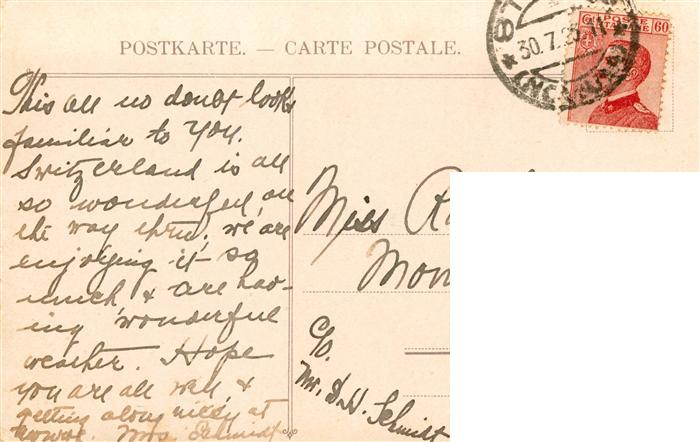 POSTKARTE. — CARTE POSTALE.
POSTE ITALIANE 60
30.7.25.11
This all no doubt looks
familiar to you.
Switzerland is all
so wonderful all
the way thru, we are
enjoying it so
much & are hav-
ing wonderful
weather. Hope
you are all well &
getting along nicely at
home. Mrs Schmidt
Miss
c/o.
Mr. D.H. Schmidt